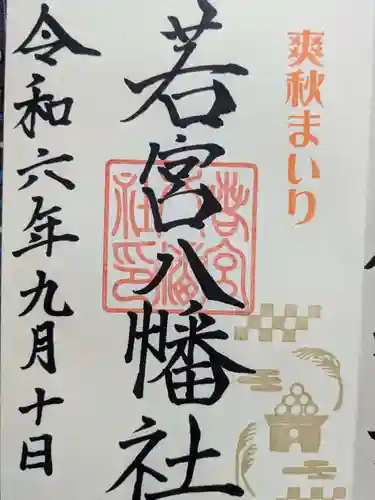 爽秋まいり
若宮八幡社
若宮八幡社印
令和六年九月十日